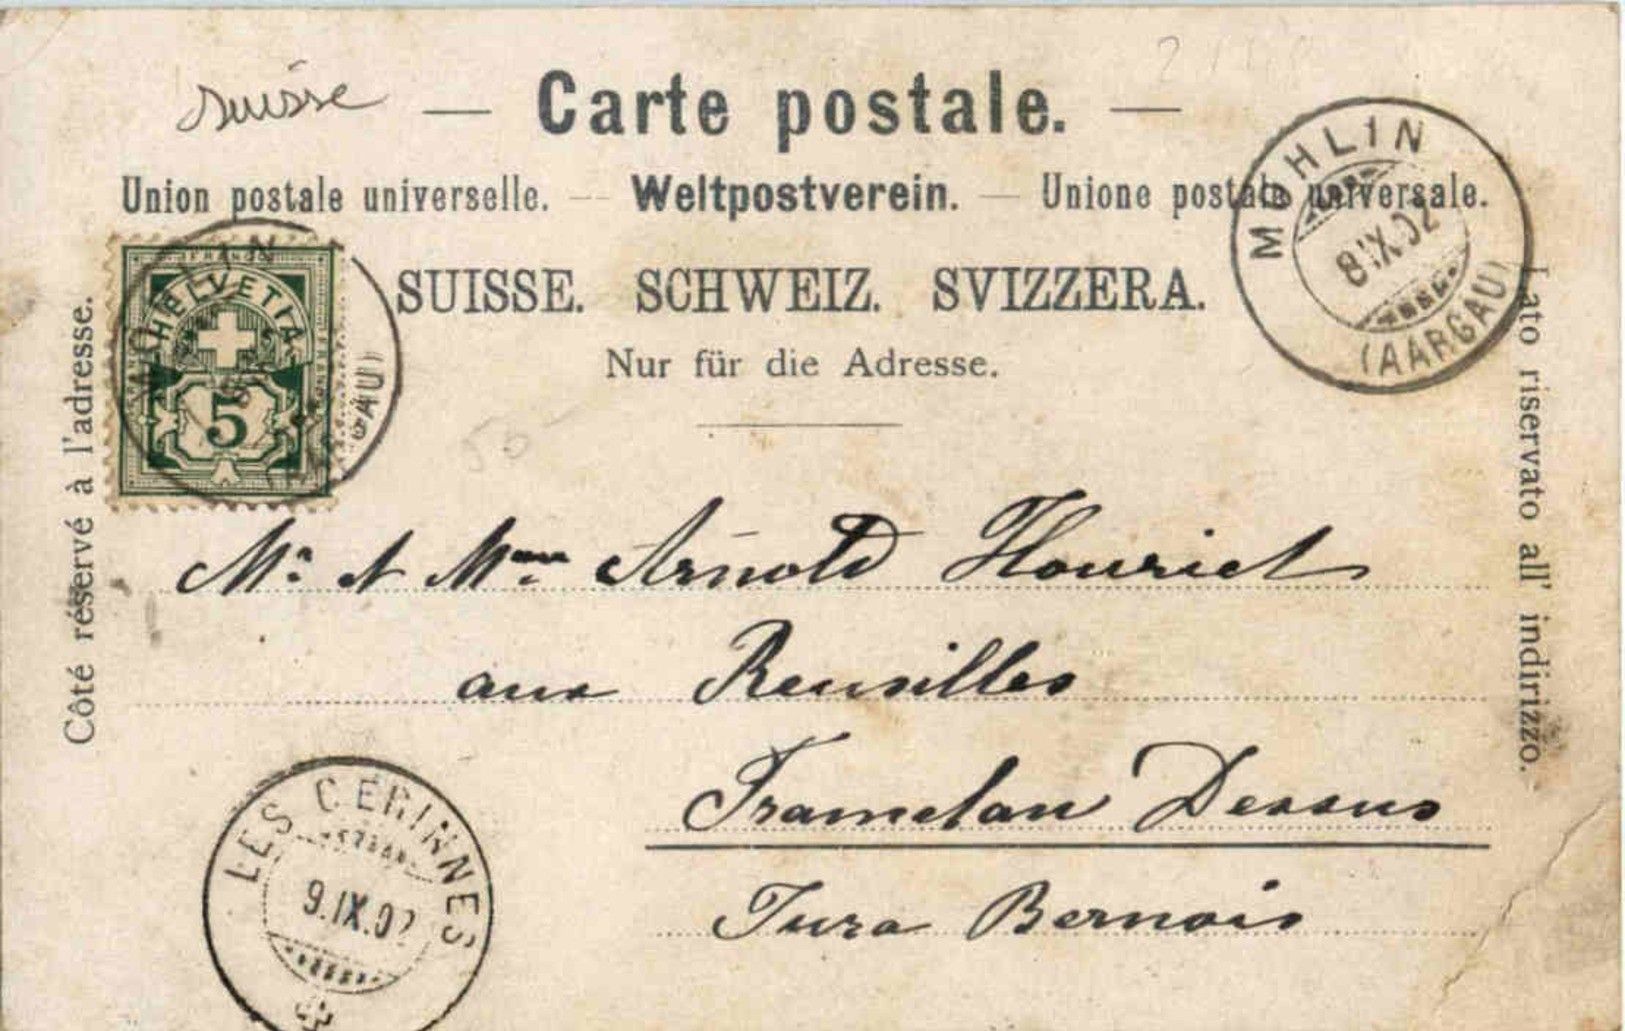 suisse
— Carte postale. —
Union postale universelle. — Weltpostverein. — Unione postale universale.
SUISSE. SCHWEIZ. SVIZZERA.
Nur für die Adresse.
Côté réservé à l'adresse.
Lato riservato all' indirizzo.
FRANCO
HELVETIA
5
MÖHLIN
8.IX.02
(AARGAU)
50
Mr. et Mme Arnold Houriet
aux Reusilles
Tramelan Dessus
Jura Bernois
LES CERINNES
9.IX.02